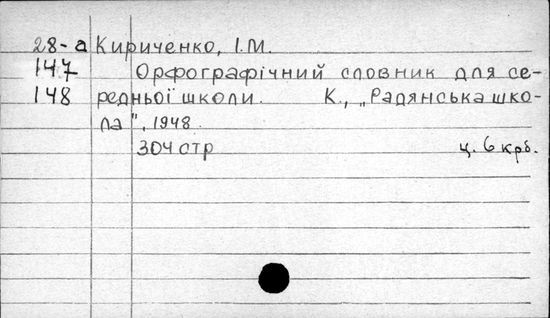 28-а Кириченко, І.М.
147 Орфографічний словник для се-
148 редньої школи. К., „Радянська шко-
ла", 1948.
304 стр ц. 6 крб.